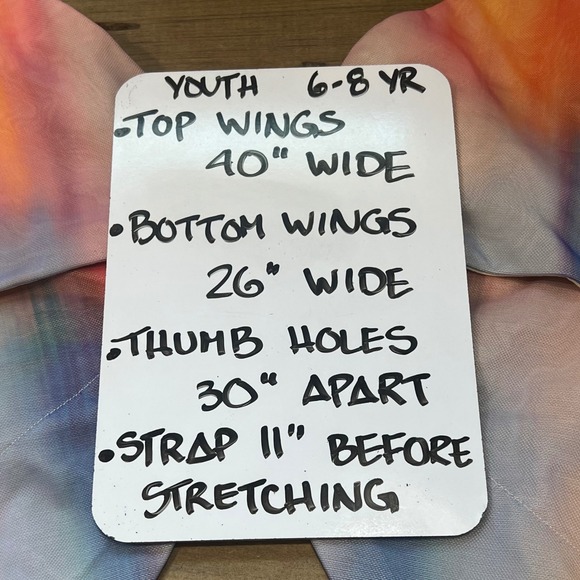 YOUTH 6-8 YR
•TOP WINGS
40" WIDE
•BOTTOM WINGS
26" WIDE
•THUMB HOLES
30" APART
•STRAP 11" BEFORE
STRETCHING